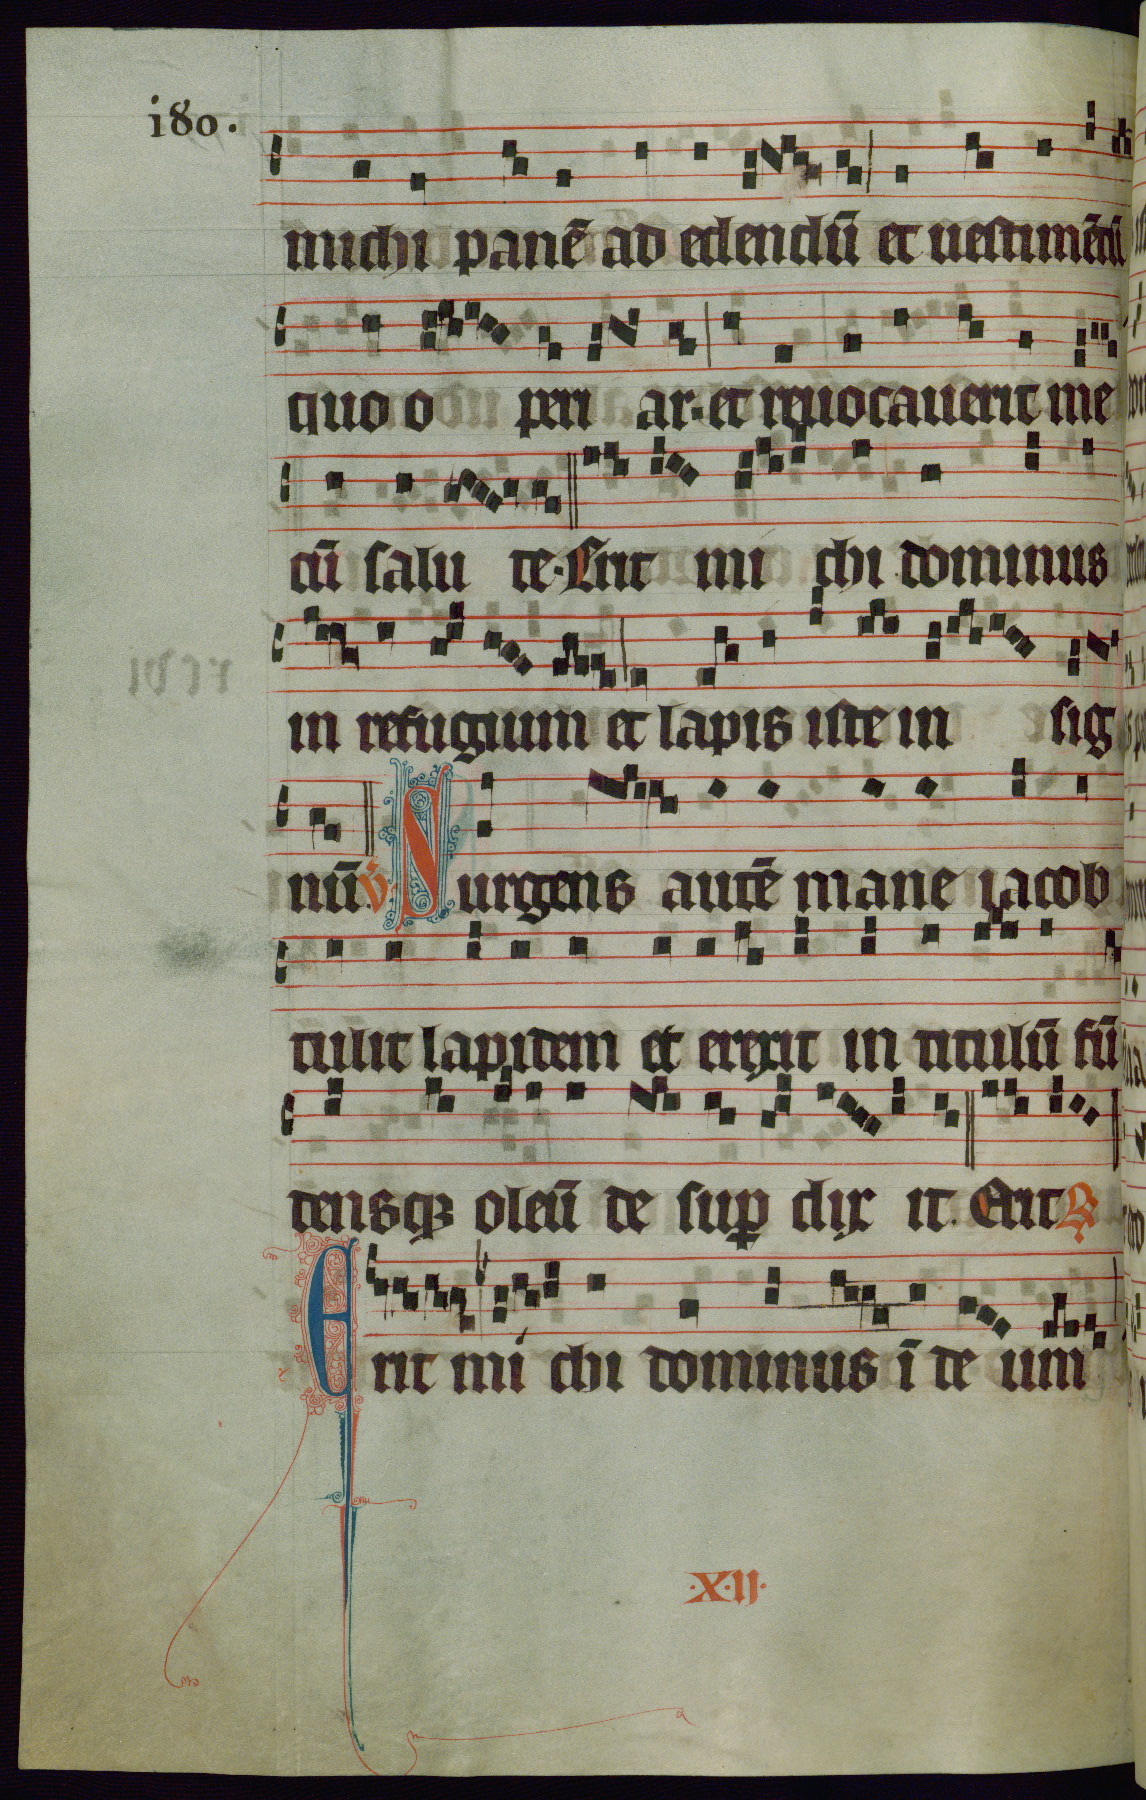 180.
michi panē ad edendū et uestimētū
quo o peri ar. et reuocauerit me
cū salu te. Erit mi chi dominus
in refugium et lapis iste in sig
nū. V. Nurgens autē mane iacob
tulit lapidem et erexit in titulū fū
densqꝫ oleū de suꝑ dix it. Erit R
Erit mi chi dominus ī de um
.X.II.